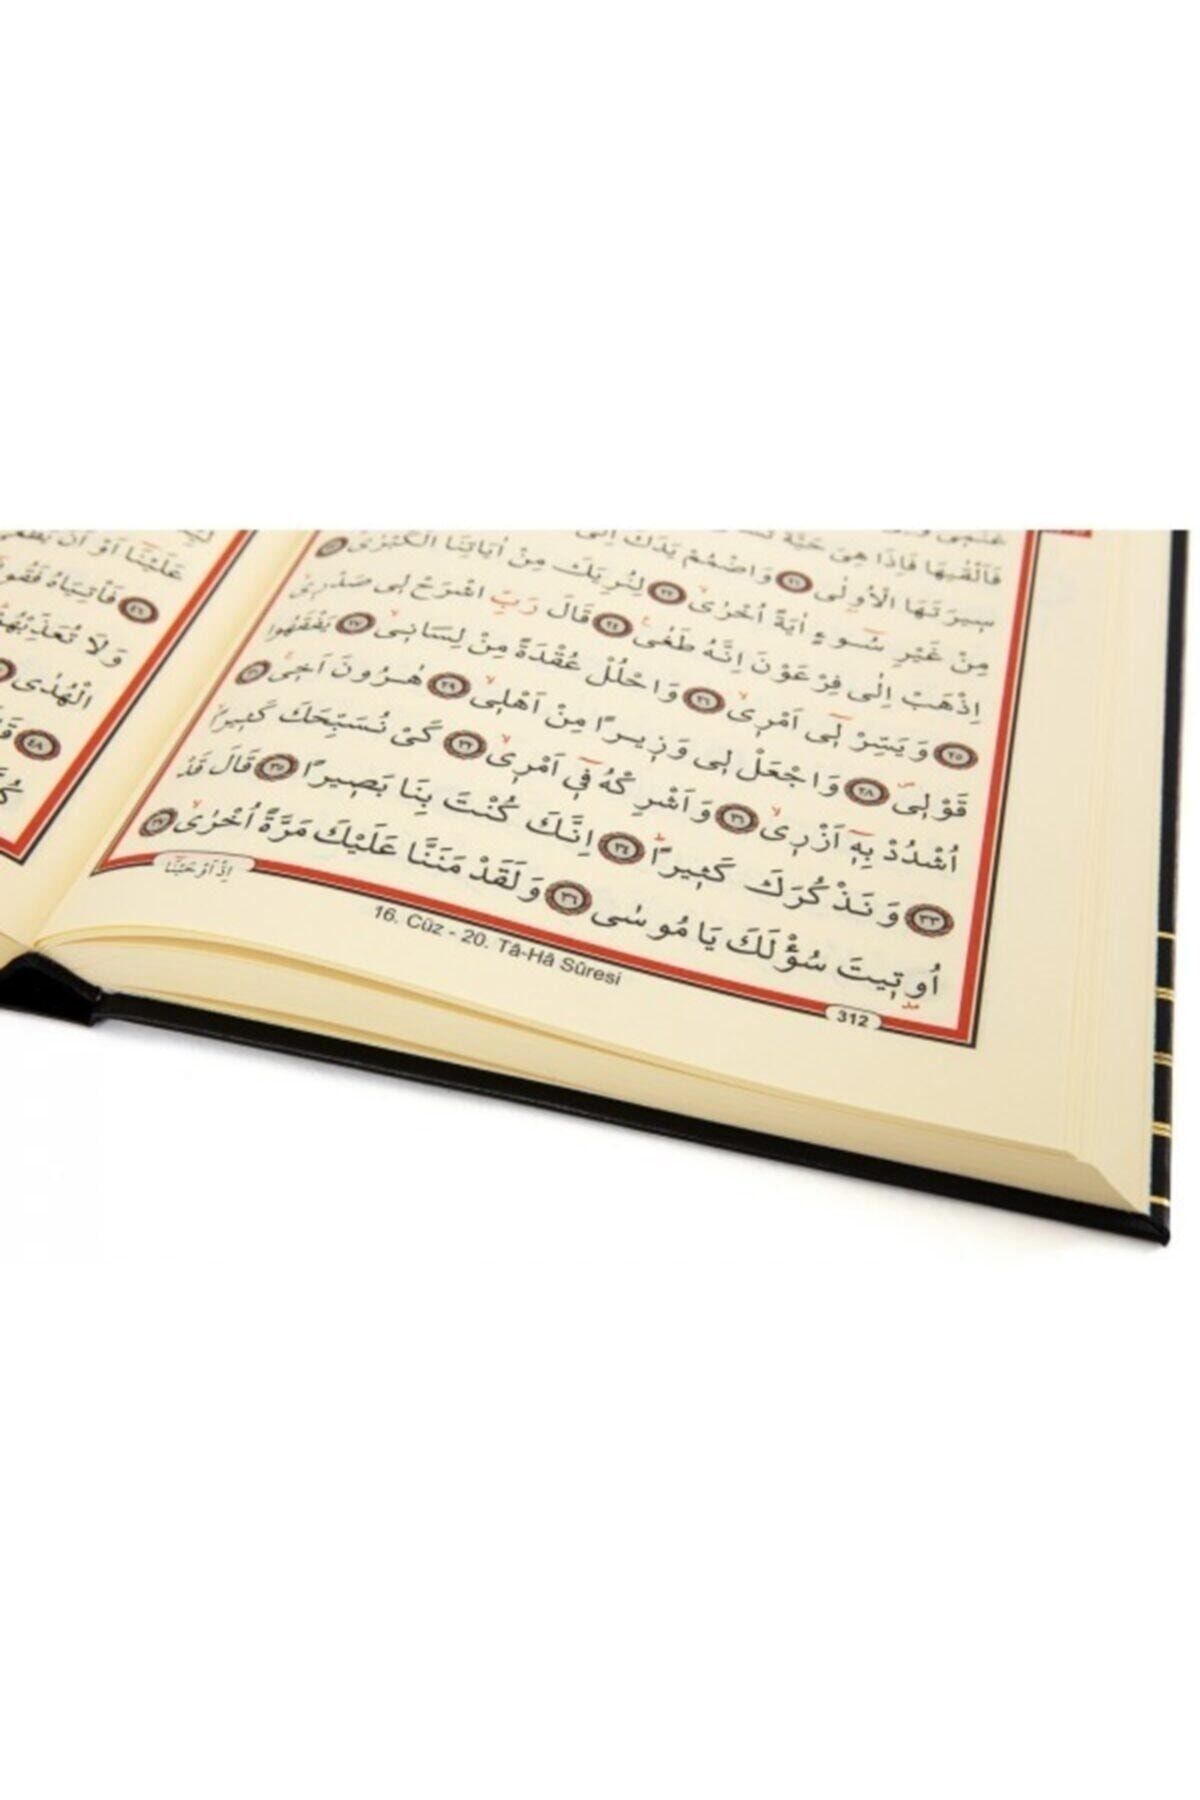 فَاَلْقٰيهَا فَاِذَا هِىَ حَيَّةٌ
سِيرَتَهَا الْاُولٰى ﴿٢١﴾ وَاضْمُمْ يَدَكَ اِلٰى
مِنْ غَيْرِ سُٓوءٍ اٰيَةً اُخْرٰىۙ ﴿٢٢﴾ لِنُرِيَكَ مِنْ اٰيَاتِنَا الْكُبْرٰىۚ ﴿٢٣﴾
اِذْهَبْ اِلٰى فِرْعَوْنَ اِنَّهُ طَغٰى۟ ﴿٢٤﴾ قَالَ رَبِّ اشْرَحْ لِى صَدْرِىۙ
﴿٢٥﴾ وَيَسِّرْ لِٓى اَمْرِىۙ ﴿٢٦﴾ وَاحْلُلْ عُقْدَةً مِنْ لِسَانِىۙ ﴿٢٧﴾ يَفْقَهُوا
قَوْلِىۖ ﴿٢٨﴾ وَاجْعَلْ لِى وَزِيرًا مِنْ اَهْلِىۙ ﴿٢٩﴾ هٰرُونَ اَخِىۚ ﴿٣٠﴾
اُشْدُدْ بِهِٓ اَزْرِىۙ ﴿٣١﴾ وَاَشْرِكْهُ فِٓى اَمْرِىۙ ﴿٣٢﴾ كَىْ نُسَبِّحَكَ كَثِيرًاۙ
﴿٣٣﴾ وَنَذْكُرَكَ كَثِيرًاۜ ﴿٣٤﴾ اِنَّكَ كُنْتَ بِنَا بَصِيرًا ﴿٣٥﴾ قَالَ قَدْ
اُو۫تِيتَ سُؤْلَكَ يَا مُوسٰى ﴿٣٦﴾ وَلَقَدْ مَنَنَّا عَلَيْكَ مَرَّةً اُخْرٰىۙ ﴿٣٧﴾
اِذْ اَوْحَيْنَٓا
312
16. Cüz - 20. Tâ-Hâ Sûresi
عَلَيْنَٓا اَوْ اَنْ يَطْغٰى
﴿٤٦﴾ فَأْتِيَاهُ فَقُولَٓا
وَلَا تُعَذِّبْهُمْ
الْهُدٰى
﴿٤٨﴾